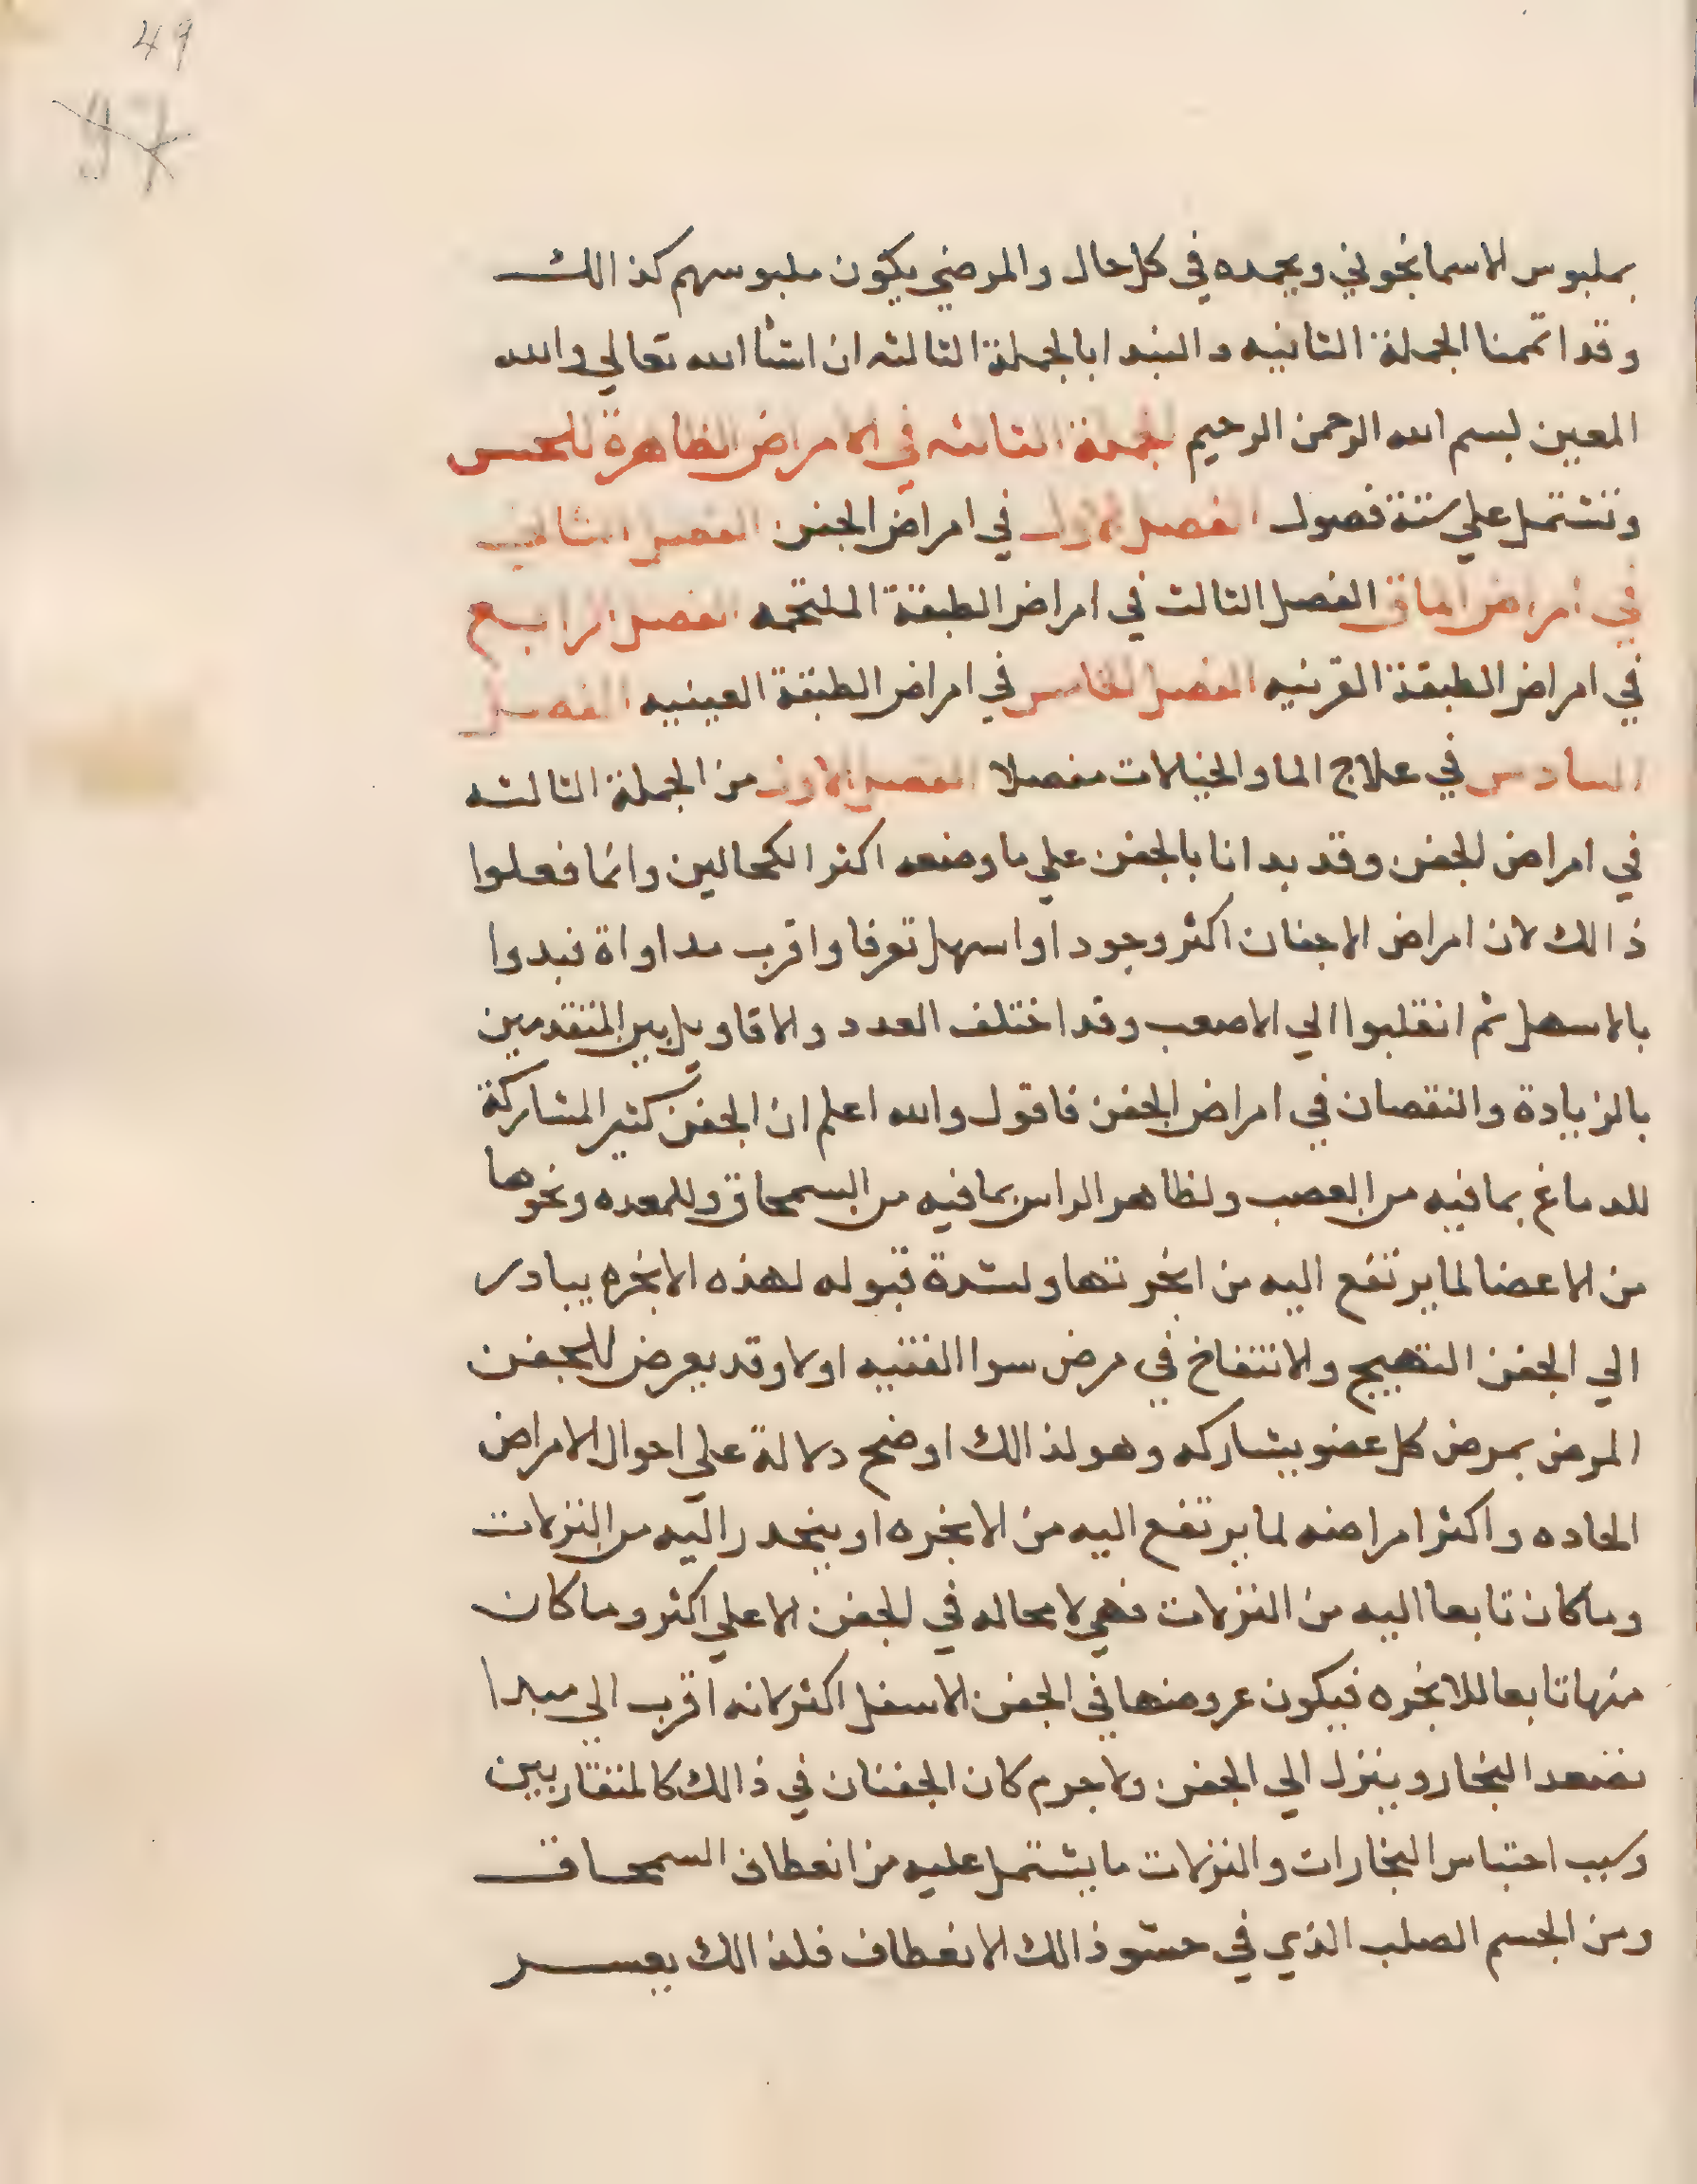 49
97
بملبوس الاسمانجوني ويحمده في كل حال والمرضي يكون ملبوسهم كذالك
وقد اتممنا الجملة الثانيه والنبدا بالجملة الثالثه ان اشأ الله تعالي والله
المعين بسم الله الرحمن الرحيم الجملة الثالثه في الامراض الظاهرة للحس
وتشتمل علي ستة فصول الفصل الاول في امراض الجفن الفصل الثاني
في امراض الماق الفصل الثالث في امراض الطبقة الملتحمه الفصل الرابع
في امراض الطبقة القرنيه الفصل الخامس في امراض الطبقة العينبيه الفصل
السادس في علاج الما والخيالات مفصلا الفصل الاول من الجملة الثالثه
في امراض الجفن وقد بدانا بالجفن علي ما وضعه اكثر الكحالين وانما فعلوا
ذالك لان امراض الاجفان اكثر وجودا واسهل تعرفا واقرب مداواة فبدوا
بالاسهل ثم انقلبوا الي الاصعب وقد اختلف العدد والاقاويل بين المتقدمين
بالزيادة والنقصان في امراض الجفن فاقول والله اعلم ان الجفن كثير المشاركة
للدماغ بمافيه من العصب ولظاهر الراس بمافيه من السمحاق وللمعده ونحوها
من الاعضا لما يرتفع اليه من ابخرتها ولشدة قبوله لهذه الابخره يبادر
الي الجفن التهييج والانتفاخ في مرض سوا القنيه اولا وقد يعرض للجفن
المرض بمرض كل عضو يشاركه وهو لذالك اوضح دلالة علي احوال الامراض
الحاده واكثر امراضه لما يرتفع اليه من الابخره او ينحدر اليه من النزلات
وماكان تابعا اليه من النزلات فهي لا محاله في الجفن الاعلي اكثر وماكان
منها تابعا للابخره فيكون عروضها في الجفن الاسفل اكثر لانه اقرب الي مبدا
تصعد البخار وينزل الي الجفن ولاجرم كان الجفنان في ذالك كالمتقاربين
وسبب احتباس البخارات والنزلات مايشتمل عليه من انعطاف السمحاق
ومن الجسم الصلب الذي في حشو ذالك الانعطاف فلذالك يعسر